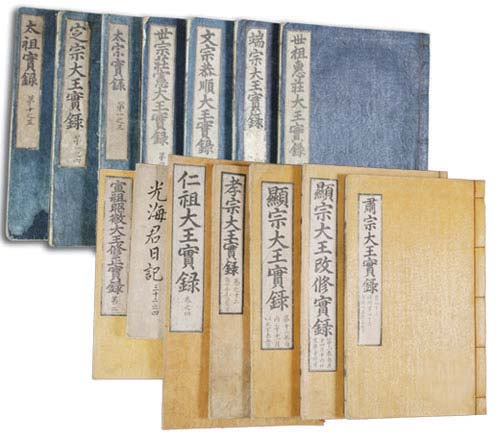 太祖實錄
第十之五
定宗大王實錄
太宗實錄
第一之三
世宗莊憲大王實錄
文宗恭順大王實錄
端宗大王實錄
世祖惠莊大王實錄
宣祖昭敬大王修正實錄
光海君日記
三十三之四
仁祖大王實錄
孝宗大王實錄
顯宗大王實錄
顯宗大王改修實錄
肅宗大王實錄